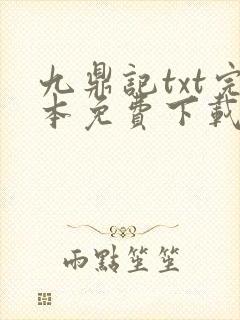 九鼎記txt完
本免費下載
雨點笙笙